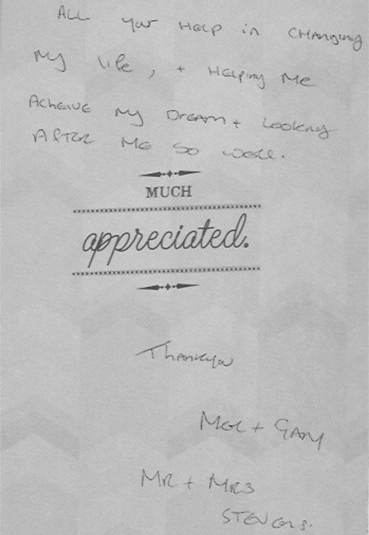 ALL your HELP in CHANGING
My life, + HELPING ME
ACHEIVE My DREAM + Looking
AFTER ME SO WELL.
MUCH
appreciated.
Thankyou
MEL + GARY
MR + MRS
STEVENS.